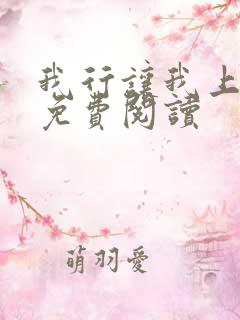 我行讓我上
免費閱讀
萌羽愛